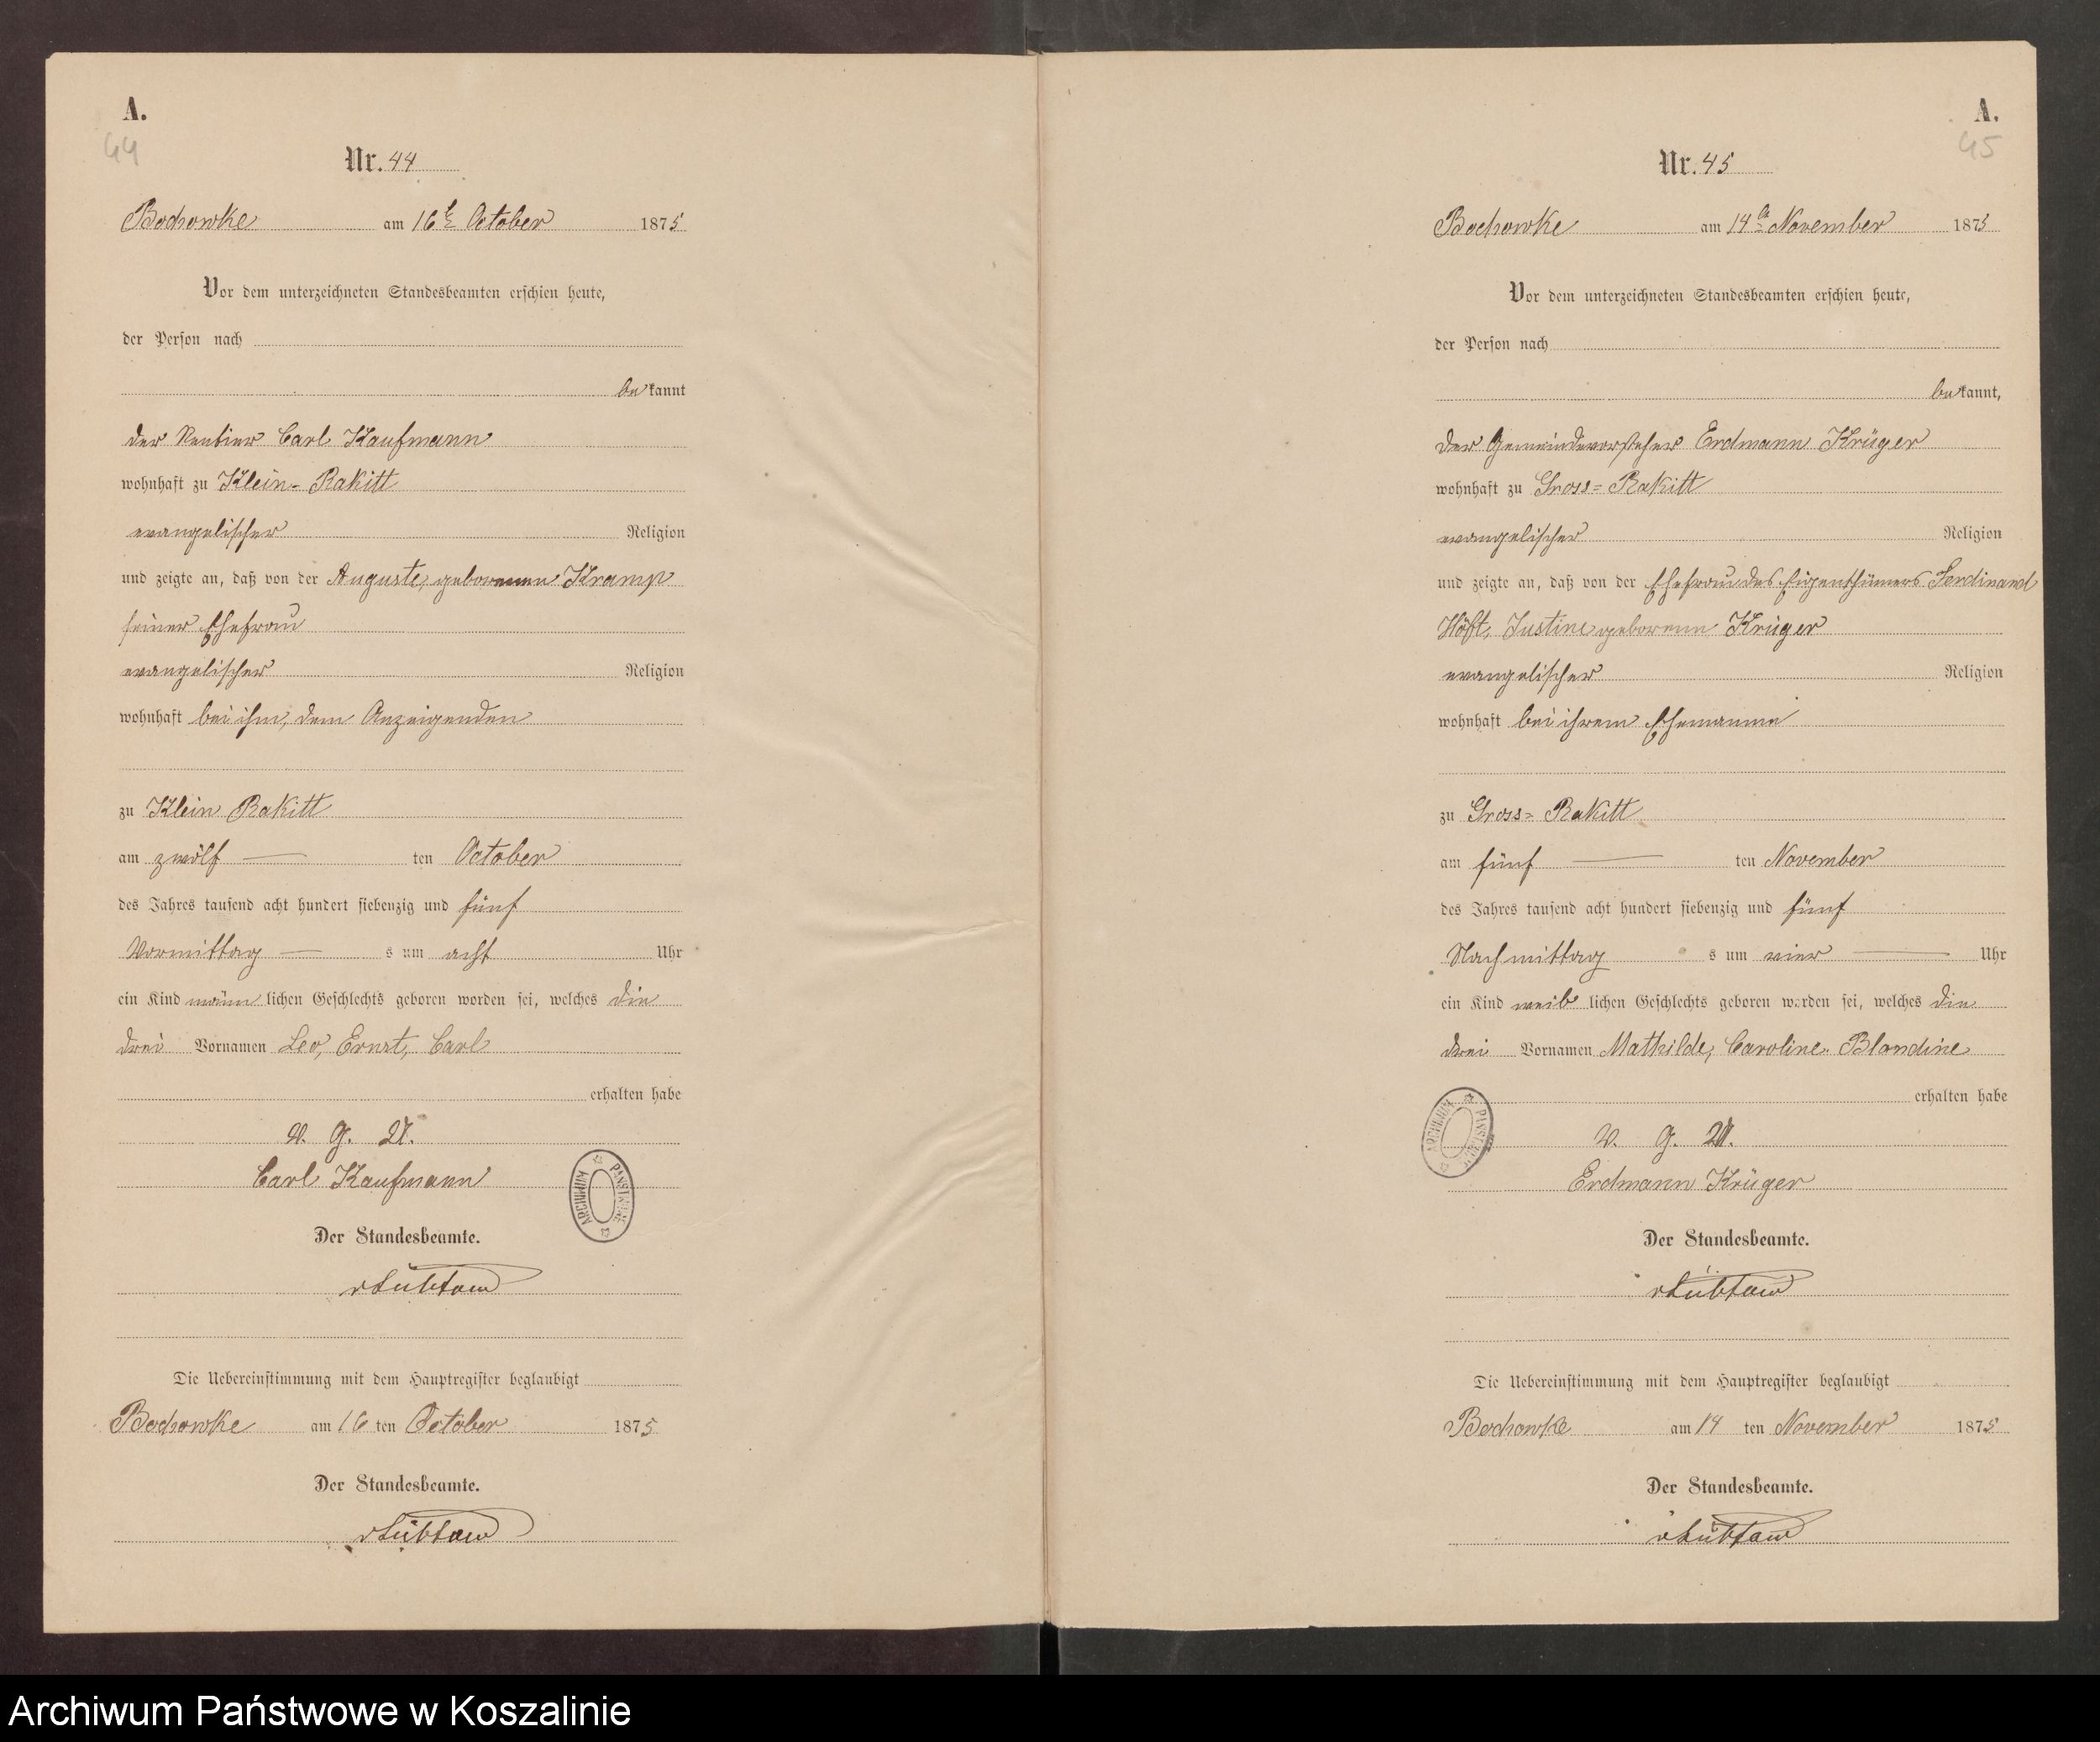 A.
44
Nr. 44
Bochowke am 16t October 1875
Vor dem unterzeichneten Standesbeamten erschien heute,
der Person nach
bekannt
der Rentier Carl Kaufmann
wohnhaft zu Klein-Rakitt
evangelischer Religion
und zeigte an, daß von der Auguste, geborenen Kramp
seiner Ehefrau
evangelischer Religion
wohnhaft bei ihm, dem Anzeigenden
zu Klein Rakitt
am zwölf ten October
des Jahres tausend acht hundert siebenzig und fünf
Vormittag s um acht Uhr
ein Kind männlichen Geschlechts geboren worden sei, welches die
drei Vornamen Leo, Ernst, Carl
erhalten habe
V. G. U.
Carl Kaufmann
ARCHIWUM PAŃSTWOWE
Der Standesbeamte.
vLübtow
Die Uebereinstimmung mit dem Hauptregister beglaubigt
Bochowke am 16 ten October 1875
Der Standesbeamte.
vLübtow
A.
45
Nr. 45
Bochowke am 14t November 1875
Vor dem unterzeichneten Standesbeamten erschien heute,
der Person nach
bekannt,
der Gemeindevorsteher Erdmann Krüger
wohnhaft zu Gross=Rakitt
evangelischer Religion
und zeigte an, daß von der Ehefrau des Eigenthümers Ferdinand
Höft, Justine geborenen Krüger
evangelischer Religion
wohnhaft bei ihrem Ehemanne
zu Gross=Rakitt
am fünf ten November
des Jahres tausend acht hundert siebenzig und fünf
Nachmittag s um vier Uhr
ein Kind weiblichen Geschlechts geboren worden sei, welches die
drei Vornamen Mathilde, Caroline Blandine
erhalten habe
ARCHIWUM PAŃSTWOWE
V. G. U.
Erdmann Krüger
Der Standesbeamte.
vLübtow
Die Uebereinstimmung mit dem Hauptregister beglaubigt
Bochowke am 14 ten November 1875
Der Standesbeamte.
vLübtow
Archiwum Państwowe w Koszalinie